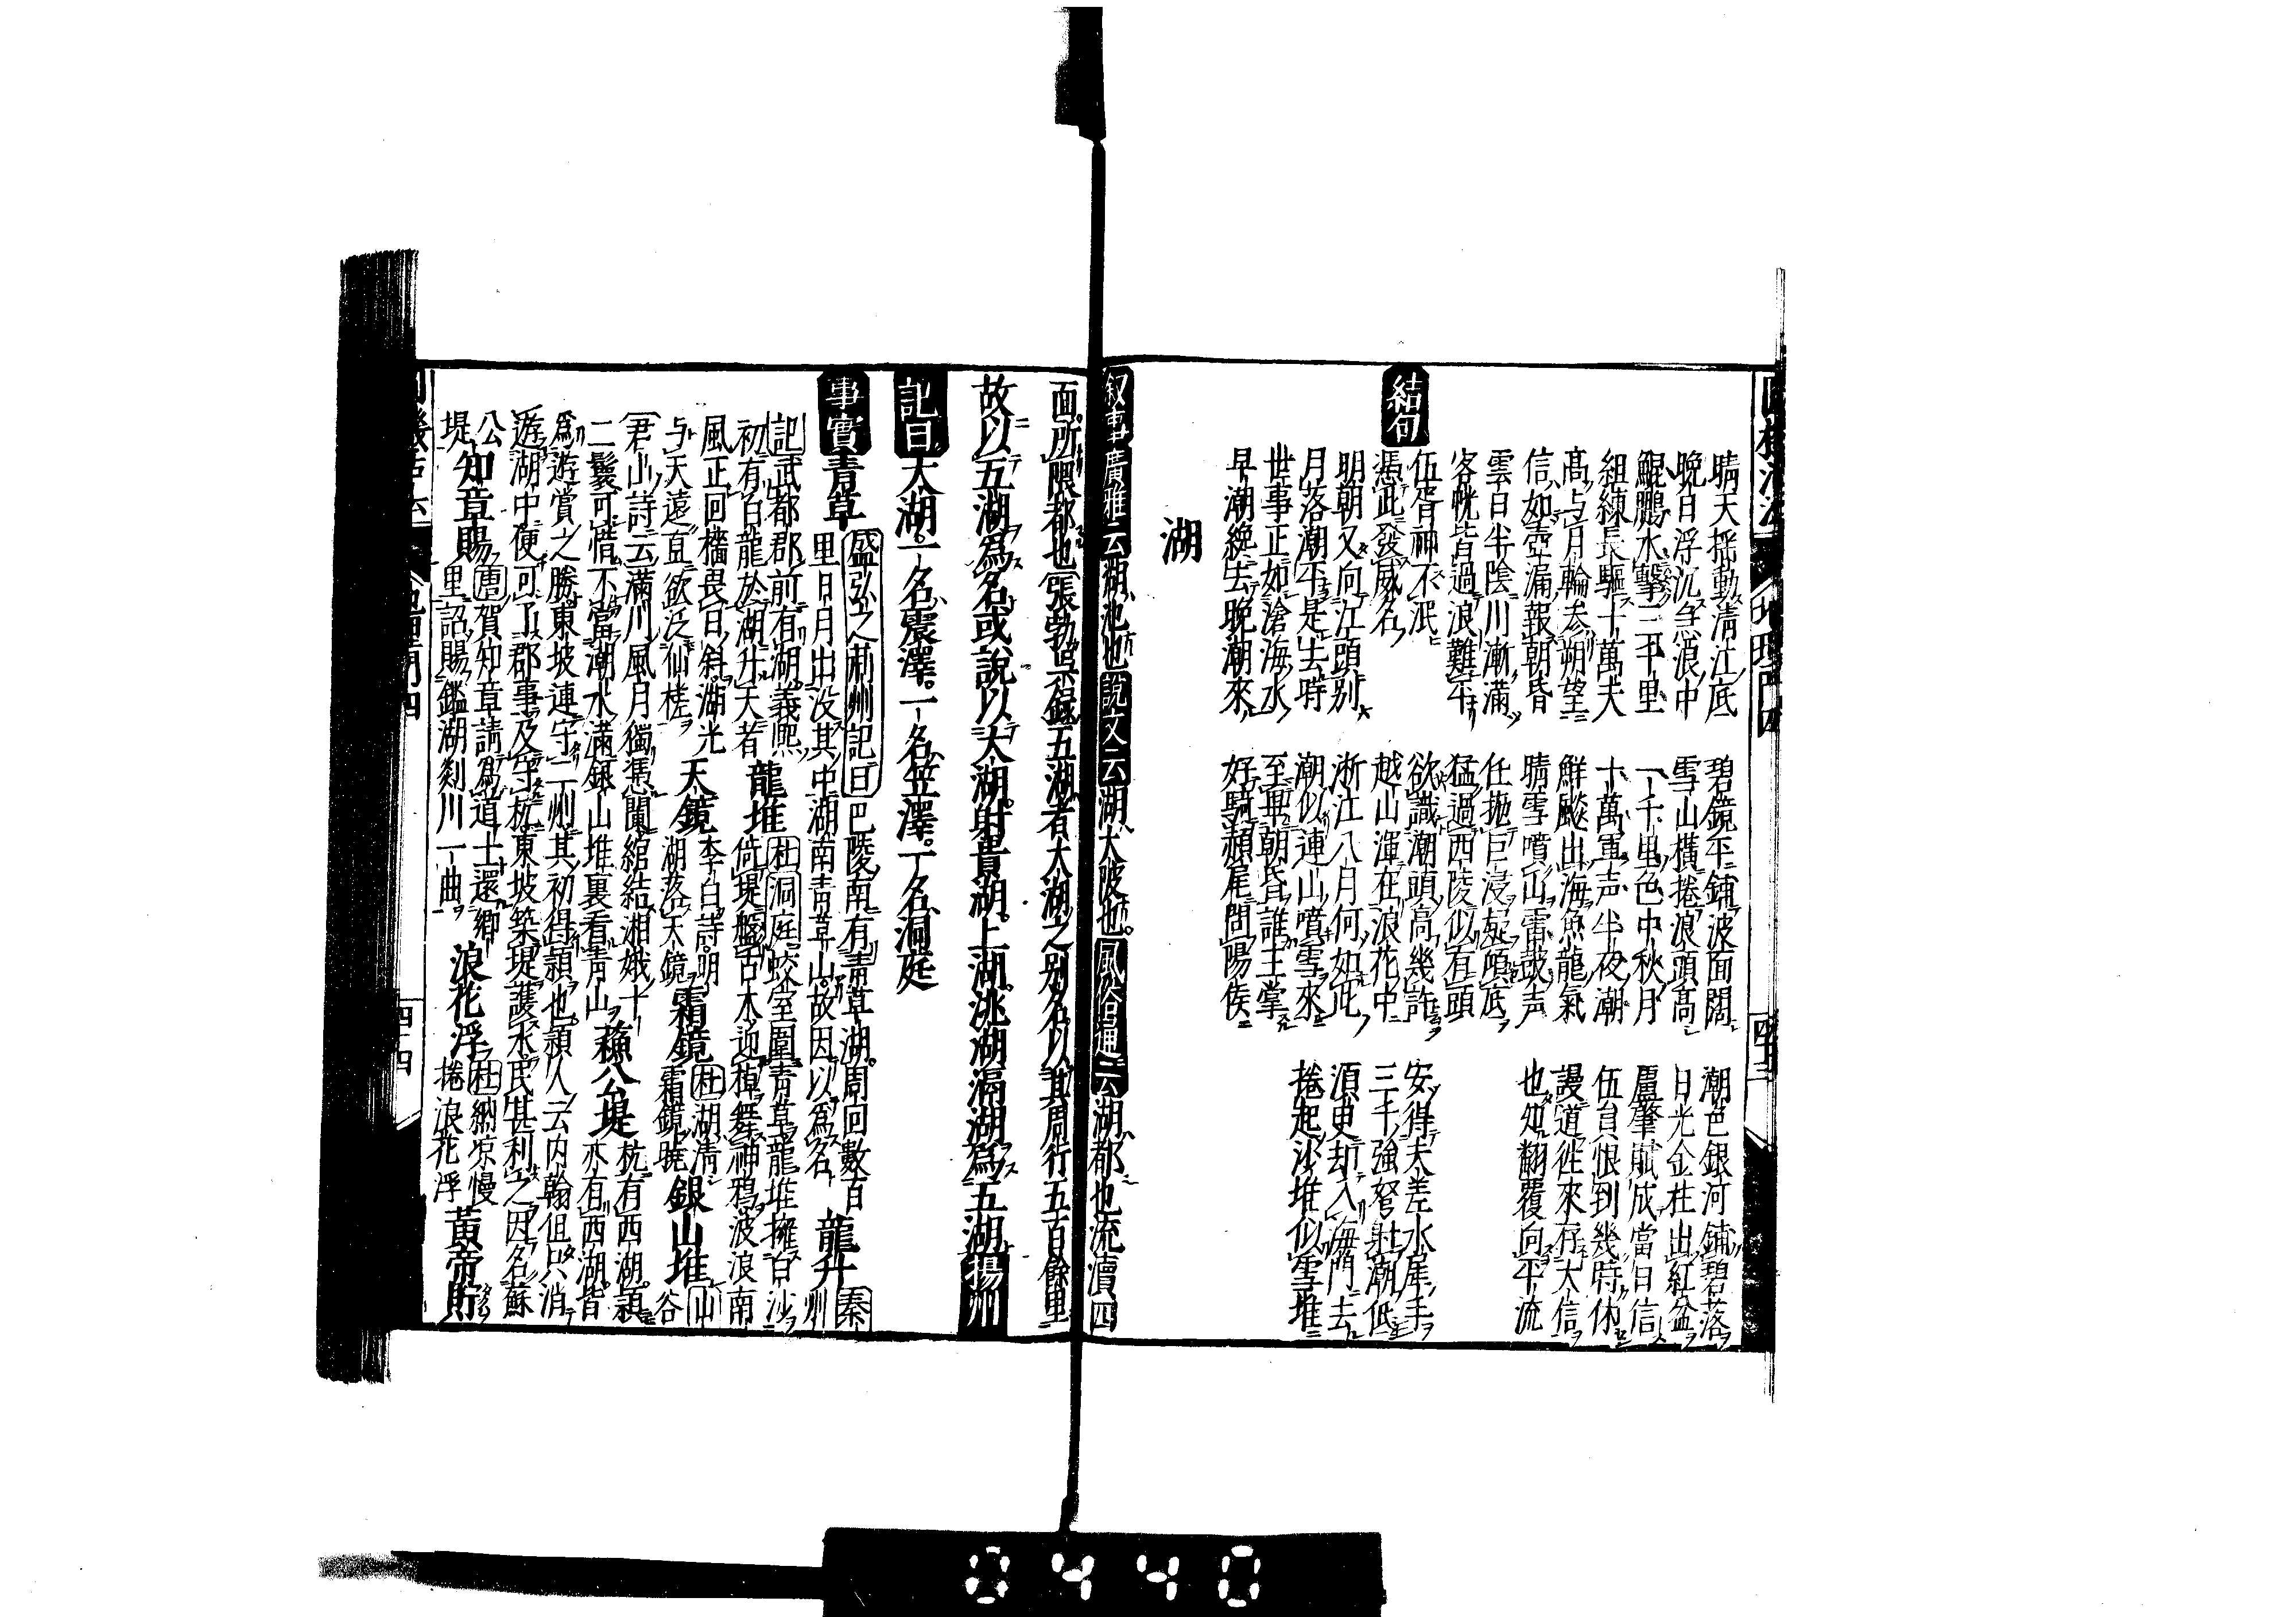 晴天揺動清江底 碧鏡平鋪波面闊 潮色銀河鋪碧落
晩日浮沉急浪中 雪山橫捲浪頭高 日光金柱出紅盆
鯤鵬水擊三千里 一千里色中秋月 盧肇賦成當日信
組練長驅十萬夫 十萬軍声半夜潮 伍員恨到幾時休
高与月輪参朔望 鮮飈出海魚龍氣 謾道徃來存大信
信如壺漏報朝昏 晴雪噴山雷鼓声 也知翻覆向平流
雲白半陰川漸滿 任抛巨浸疑底
客帆皆過浪難平 猛過西陵似有頭
結句
伍胥神不泯 欲識潮頭高幾許 安得夫差水犀手
憑此發威名 越山渾在浪花中 三千強弩射潮低
明朝又向江頭別 浙江八月何如此 須臾却入海門去
月落潮平是去時 潮似連山噴雪來 捲起沙堆似雪堆
世事正如滄海水 至興朝昏誰主掌
早潮纔去晩潮來 好騎赬尾問陽侯
湖
叙事 廣雅云湖池也 說文云湖大陂也。風俗通云湖都也流瀆四
面。所隈都也 張勃呉録五湖者大湖之別名以其周行五百餘里
故以五湖為名或說以大湖射貴湖。上湖。洮湖滆湖為五湖 揚州
記曰 大湖。一名震澤。一名笠澤。一名洞庭
事實 青草 盛弘之荊州記曰巴陵南有青草湖。周回數百
里日月出没其中湖南青草山。故因以為名 龍升 秦州
記武都郡前有湖。義熙
初有白龍於湖升天者 龍堆 杜洞庭蛟室圍青草龍堆擁白沙
倚堤盤古木迎棹舞神鴉波浪南
風正回檣畏日斜。湖光
与天遠直欲泛仙槎 天鏡 李白詩。明
湖落天鏡 霜鏡 杜湖清
霜鏡曉 銀山堆 山谷
君山詩云滿川風月獨憑闌綰結湘娥十
二鬟可惜不當潮水滿銀山堆裏看青山 蘓公堤 杭有西湖。潁
亦有西湖。皆
為遊賞之勝東坡連守二州其初得潁也。潁人云内翰但只消
遊湖中便可了郡事及守杭東坡築堤護水。民甚利之因名蘇
公
堤 知章賜 唐賀知章請為道士還鄉
里詔賜鑑湖剡川一曲 浪花浮 杜納凉慢
捲浪花浮 黃帝貯
地理門四
四十三
四十四
0440